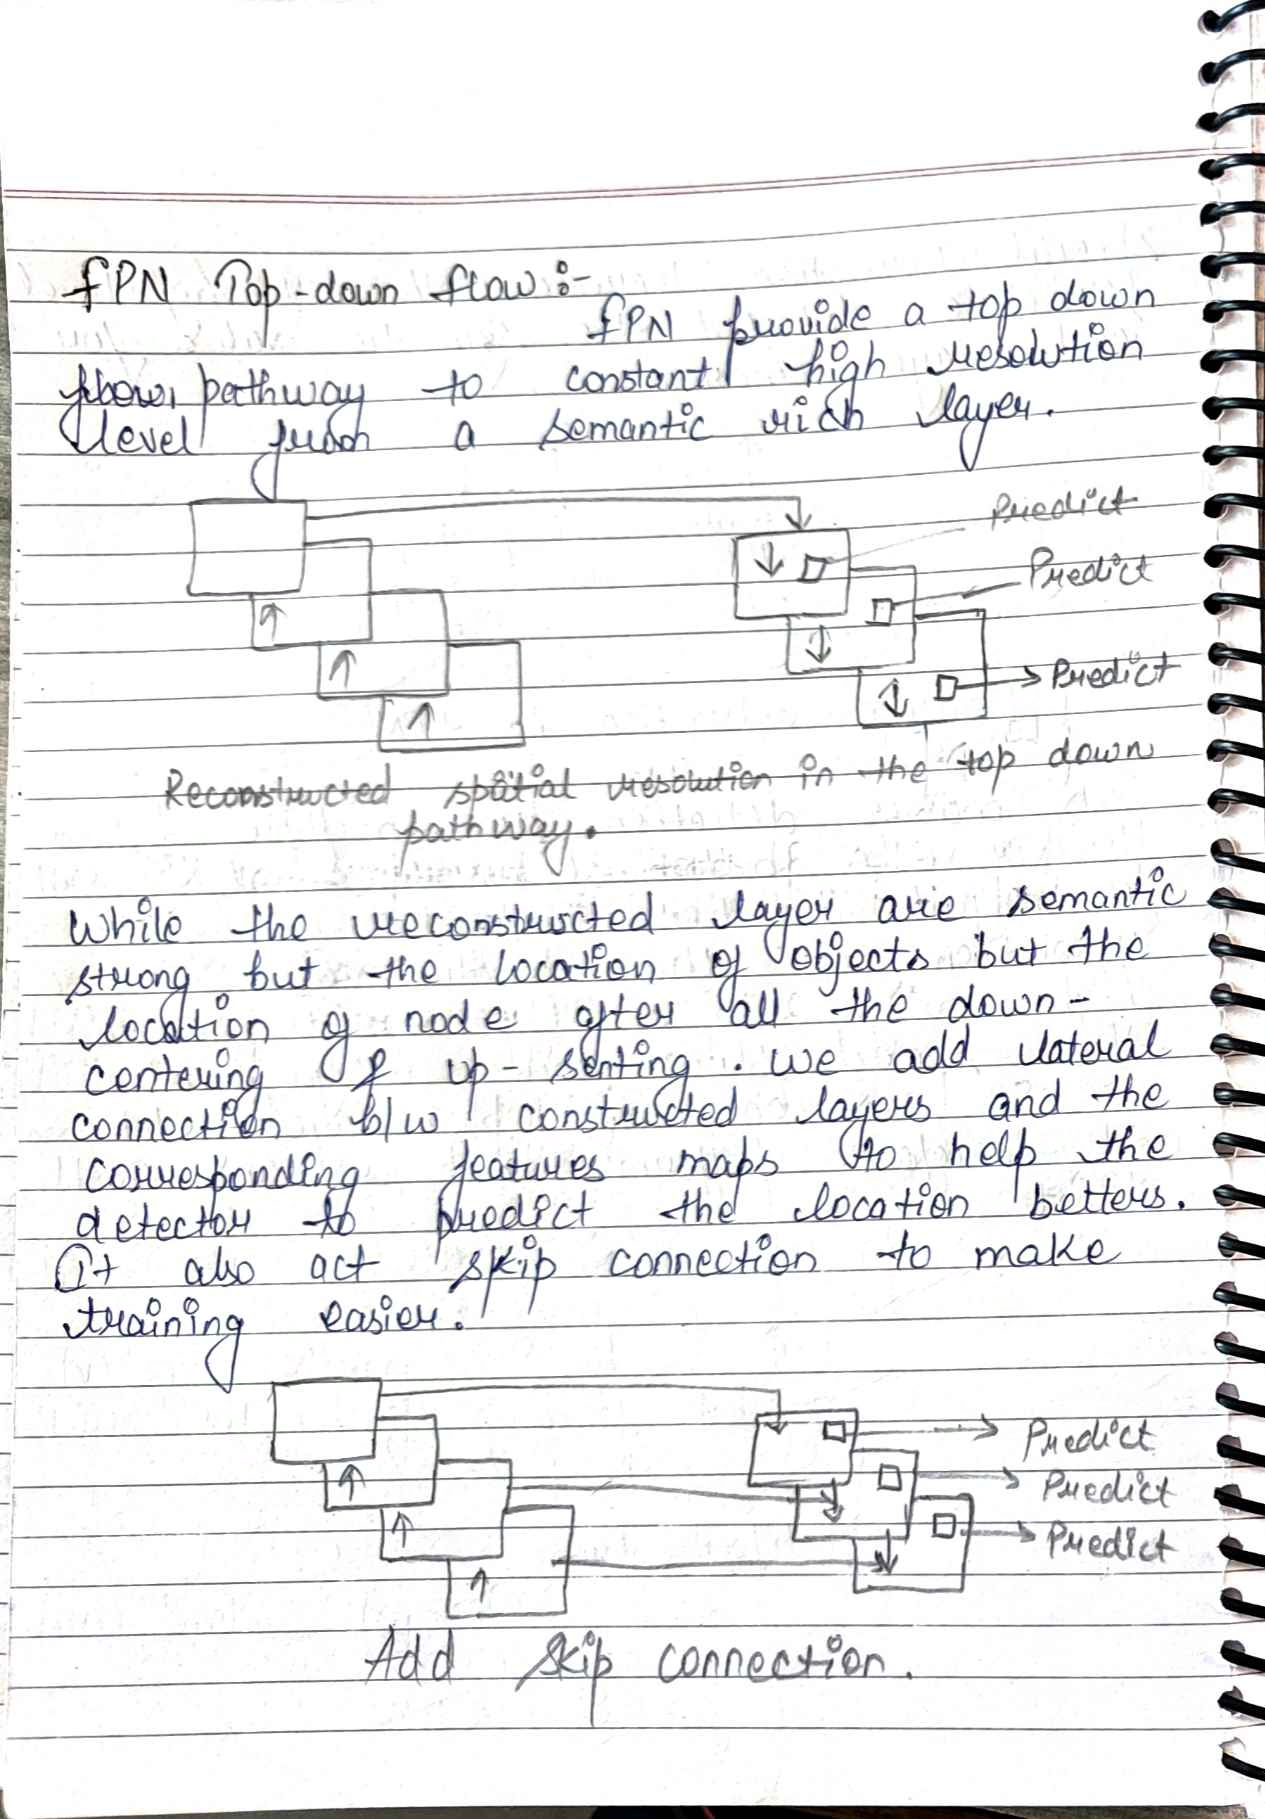 FPN Top-down flow :-
FPN provide a top down
pathway to constant high resolution
level from a semantic rich layer.
Predict
Predict
Predict
Reconstructed spatial resolution in the top down
pathway.
While the reconstructed layer are semantic
strong but the location of objects but the
location of node after all the down-
centering & up- senting. we add lateral
connection b/w constructed layers and the
corresponding features maps to help the
detector to predict the location betters.
It also act skip connection to make
training easier.
Predict
Predict
Predict
Add skip connection.